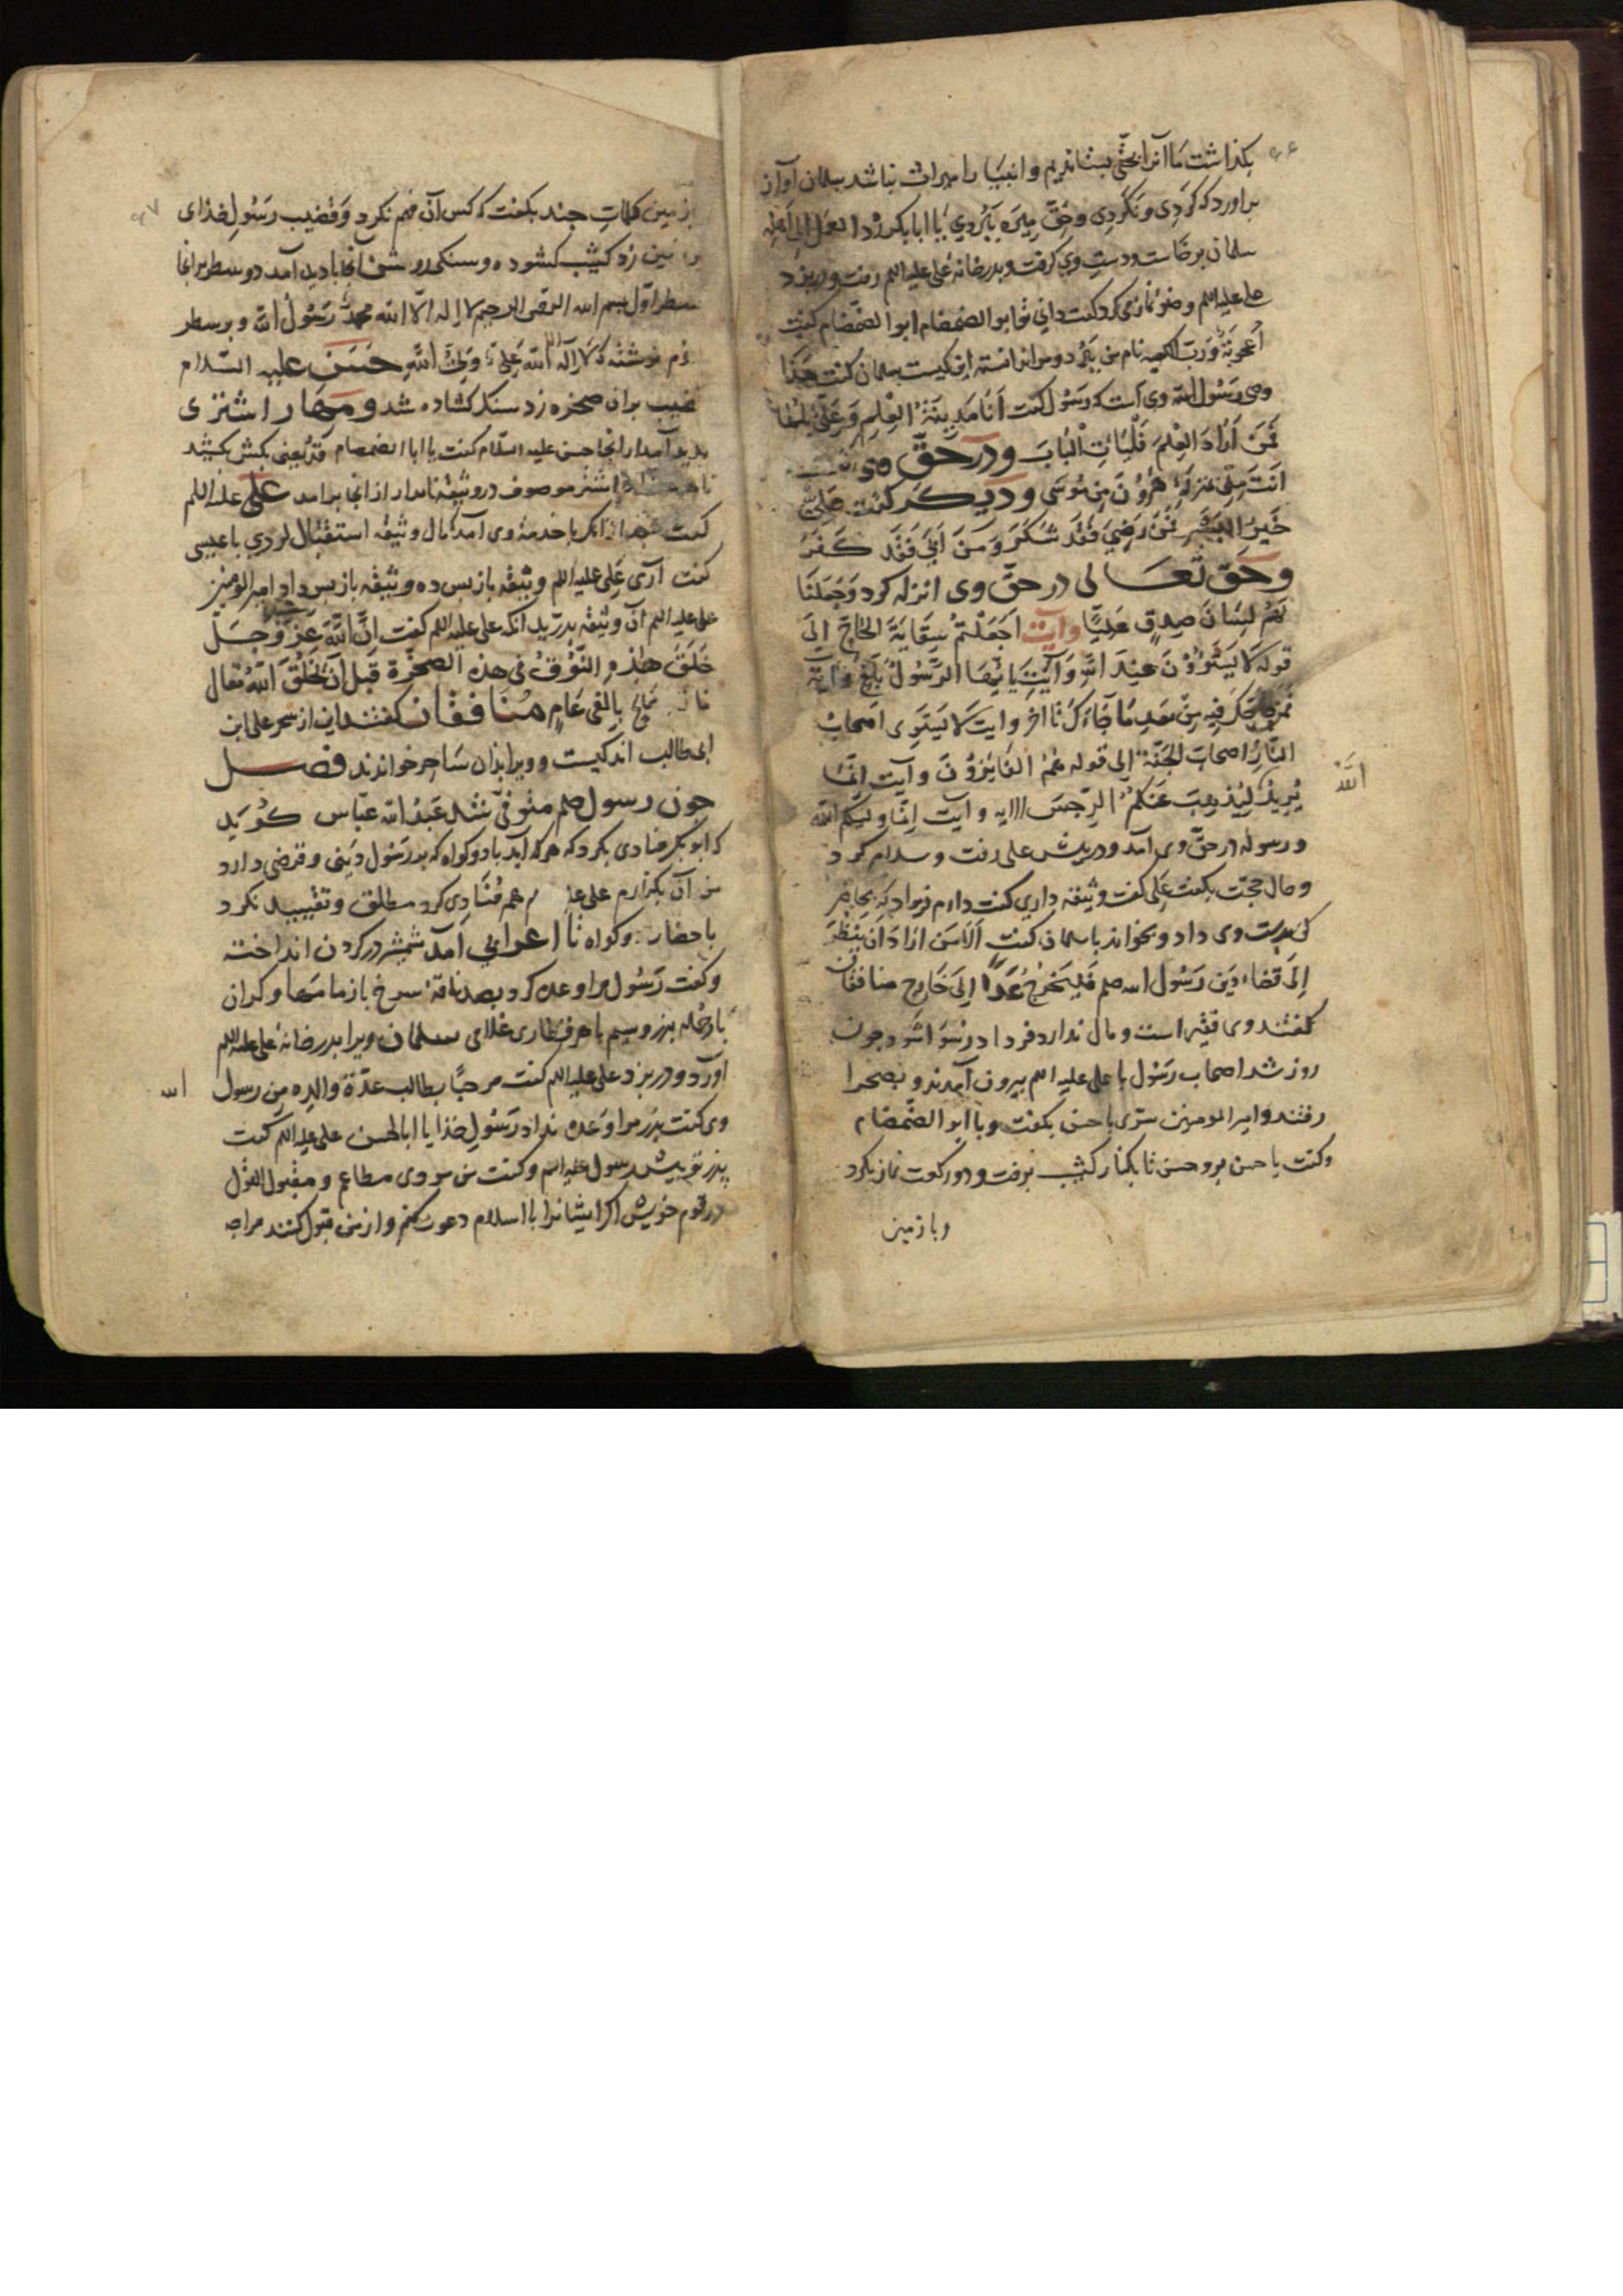 بکذاشت ما آنرا بحقی بستاندیم و انبیا را میراث نباشد سلمان آواز
براورد که کردی و نکردی و حق میره ببردی یا ابا بکر رُدّ العمل الی اهله
سلمان برخاست و دست وی کرفت و بدر خانه علی علیه السلم رفت و در بزد
علی علیه السلم وضو نماز می کرد کفت دانی تو ابو الضمضام ابو الضمضام کفت
اعجوبة و رب الکعبه نام من این کیست سلمان کفت هذا
وصی رسول الله وی است که رسول کفت اَنَا مَدِینَةُ العِلمِ وَ عَلِیٌّ بابها
فَمَن اَرَادَ العِلمَ فَلیَأتِ البَابَ و در حق وی
اَنتَ مِنّی بمنزلة هَرُونَ مِن مُوسَی و دیکر کفت عَلِیٌّ
خَیرُ البَشَرِ فَمَن رَضِیَ فَقَد شَکَرَ وَ مَن اَبَی فَقَد کَفَرَ
و حق تعالی در حق وی انزله کرد وَجَعَلنَا
لَهُم لِسَانَ صِدقٍ عَلِیًّا و آیت اَجَعَلتُم سِقَایَةَ الحَاجّ اِلَی
قوله لَا یَستَوُونَ عِندَ اللهِ وَ آیت یَا اَیُّهَا الرَّسُولُ بَلِّغ و آیه
فَمَن حَاجَّکَ فِیهِ مِن بَعدِ مَا جَاءَکَ تا آخر و آیت لَا یَستَوِی اصحاب
النَّارِ و اصحاب الجَنَّة الی قوله هُمُ الفَائِزُونَ و آیت اِنَّمَا
یُرِیدُ اللهُ لِیُذهِبَ عَنکُمُ الرِّجسَ الایه و آیت اِنَّمَا وَلِیُّکُمُ اللهُ
و رسوله در حق وی آمد و در پیش علی رفت و سلام کرد
و حال حجت بکفت علی کفت وثیقه داری کفت دارم
وی داد و بخواند با سلمان کفت اَلَا مَن اَرَادَ اَن یَنظُرَ
اِلَی قَضَاءِ دَینِ رَسُولِ الله صلم فَلیَخرُج غَدًا اِلَی خَارِج منافقان
کفتند وی فقیر است و مال ندارد فردا رسوا شود چون
روز شد اصحاب رسول با علی علیه السلم بیرون آمدند و بصحرا
رفتند و امیر المومنین سرّی با حسن بکفت و با ابو الضمضام
و کفت با حسن برو حسن تا بکنار کثیب برفت و دو رکعت نماز بکرد
و با زمین
الله
٩٦
با زمین کلمات چند بکفت که کس آن فهم نکرد و قضیب رسول خذای
زمین زد کثیب کشوده و سنکی روشن آنجا بادید آمد دو سطر برانجا
سطر اول بسم الله الرحمن الرحیم لا اله الا الله محمد رسول الله و بر سطر
دوم نوشته که لا اله الا الله علی ولی الله حسن علیه السلام
قضیب بران صخره زد سنک کشاده شد و مهار اشتری
بدید آمد از انجا حسن علیه السلام کفت یا ابا الضمضام قد یعنی بکش بکشید
تا اشتر موصوف در وثیقه نامدار از انجا برامد علی علیه السلم
کفت با خدمت وی آمد مال وثیقه استقبال لردی با عیسی
کفت آری علی علیه السلم وثیقه باز پس ده وثیقه باز پس داد امیر المومنین
علی علیه السلم آن وثیقه بدرید آنکه علی علیه السلم کفت اِنَّ اللهَ عز و جل
خَلَقَ هَذِهِ النُّوقَ فی هذه الصخرة قبل اَن یَخلُقَ اللهُ تعالی
بِالفَی عَامٍ منافقان کفتند این از سحر علی ابن
ابی طالب اندکیست و ویرا بذان ساحر خواندند فصل
چون رسول صلم متوفی شد عبد الله عباس کوید
که ابو بکر منادی بکرد که هر که آید با دو کواه که بدر رسول دینی و قرضی دارد
من آن بکزارم علی هم منادی کرد مطلق و تقیید نکرد
باحضار دو کواه تا اعرابی آمد شمشیر در کردن انداخته
و کفت رسول مرا وعده کرد بصد ناقه سرخ با زمامها و کران
بار جمله بزر و سیم با هر قطاری غلامی سلمان ویرا بدر خانه علی علیه السلم
آورد و در بزد علی علیه السلم کفت مرحبًا بطالب عدّة والده من رسول
وی کفت پدر مرا وعده نداد رسول خذا یا ابا الحسن علی علیه السلم کفت
پدر تو پیش رسول علیه السلم و کفت من مردی مطاعم و مقبول القول
در قوم خویش اکر ایشانرا با اسلام دعوت کنم و از من قبول کنند مرا چه
الله
٩٧